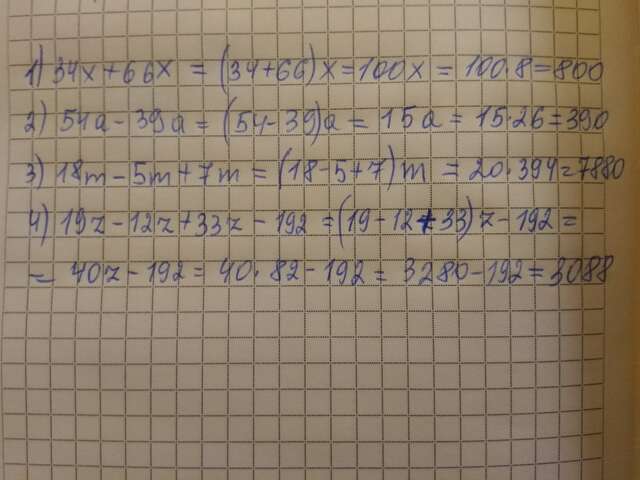 1) 34x+66x = (34+66)x=100x = 100·8=800
2) 54a-39a = (54-39)a = 15a = 15·26=390
3) 18m-5m+7m = (18-5+7)m = 20·394=7880
4) 19z-12z+33z-192 =(19-12+33)z-192=
= 40z-192=40·82-192= 3280-192=3088